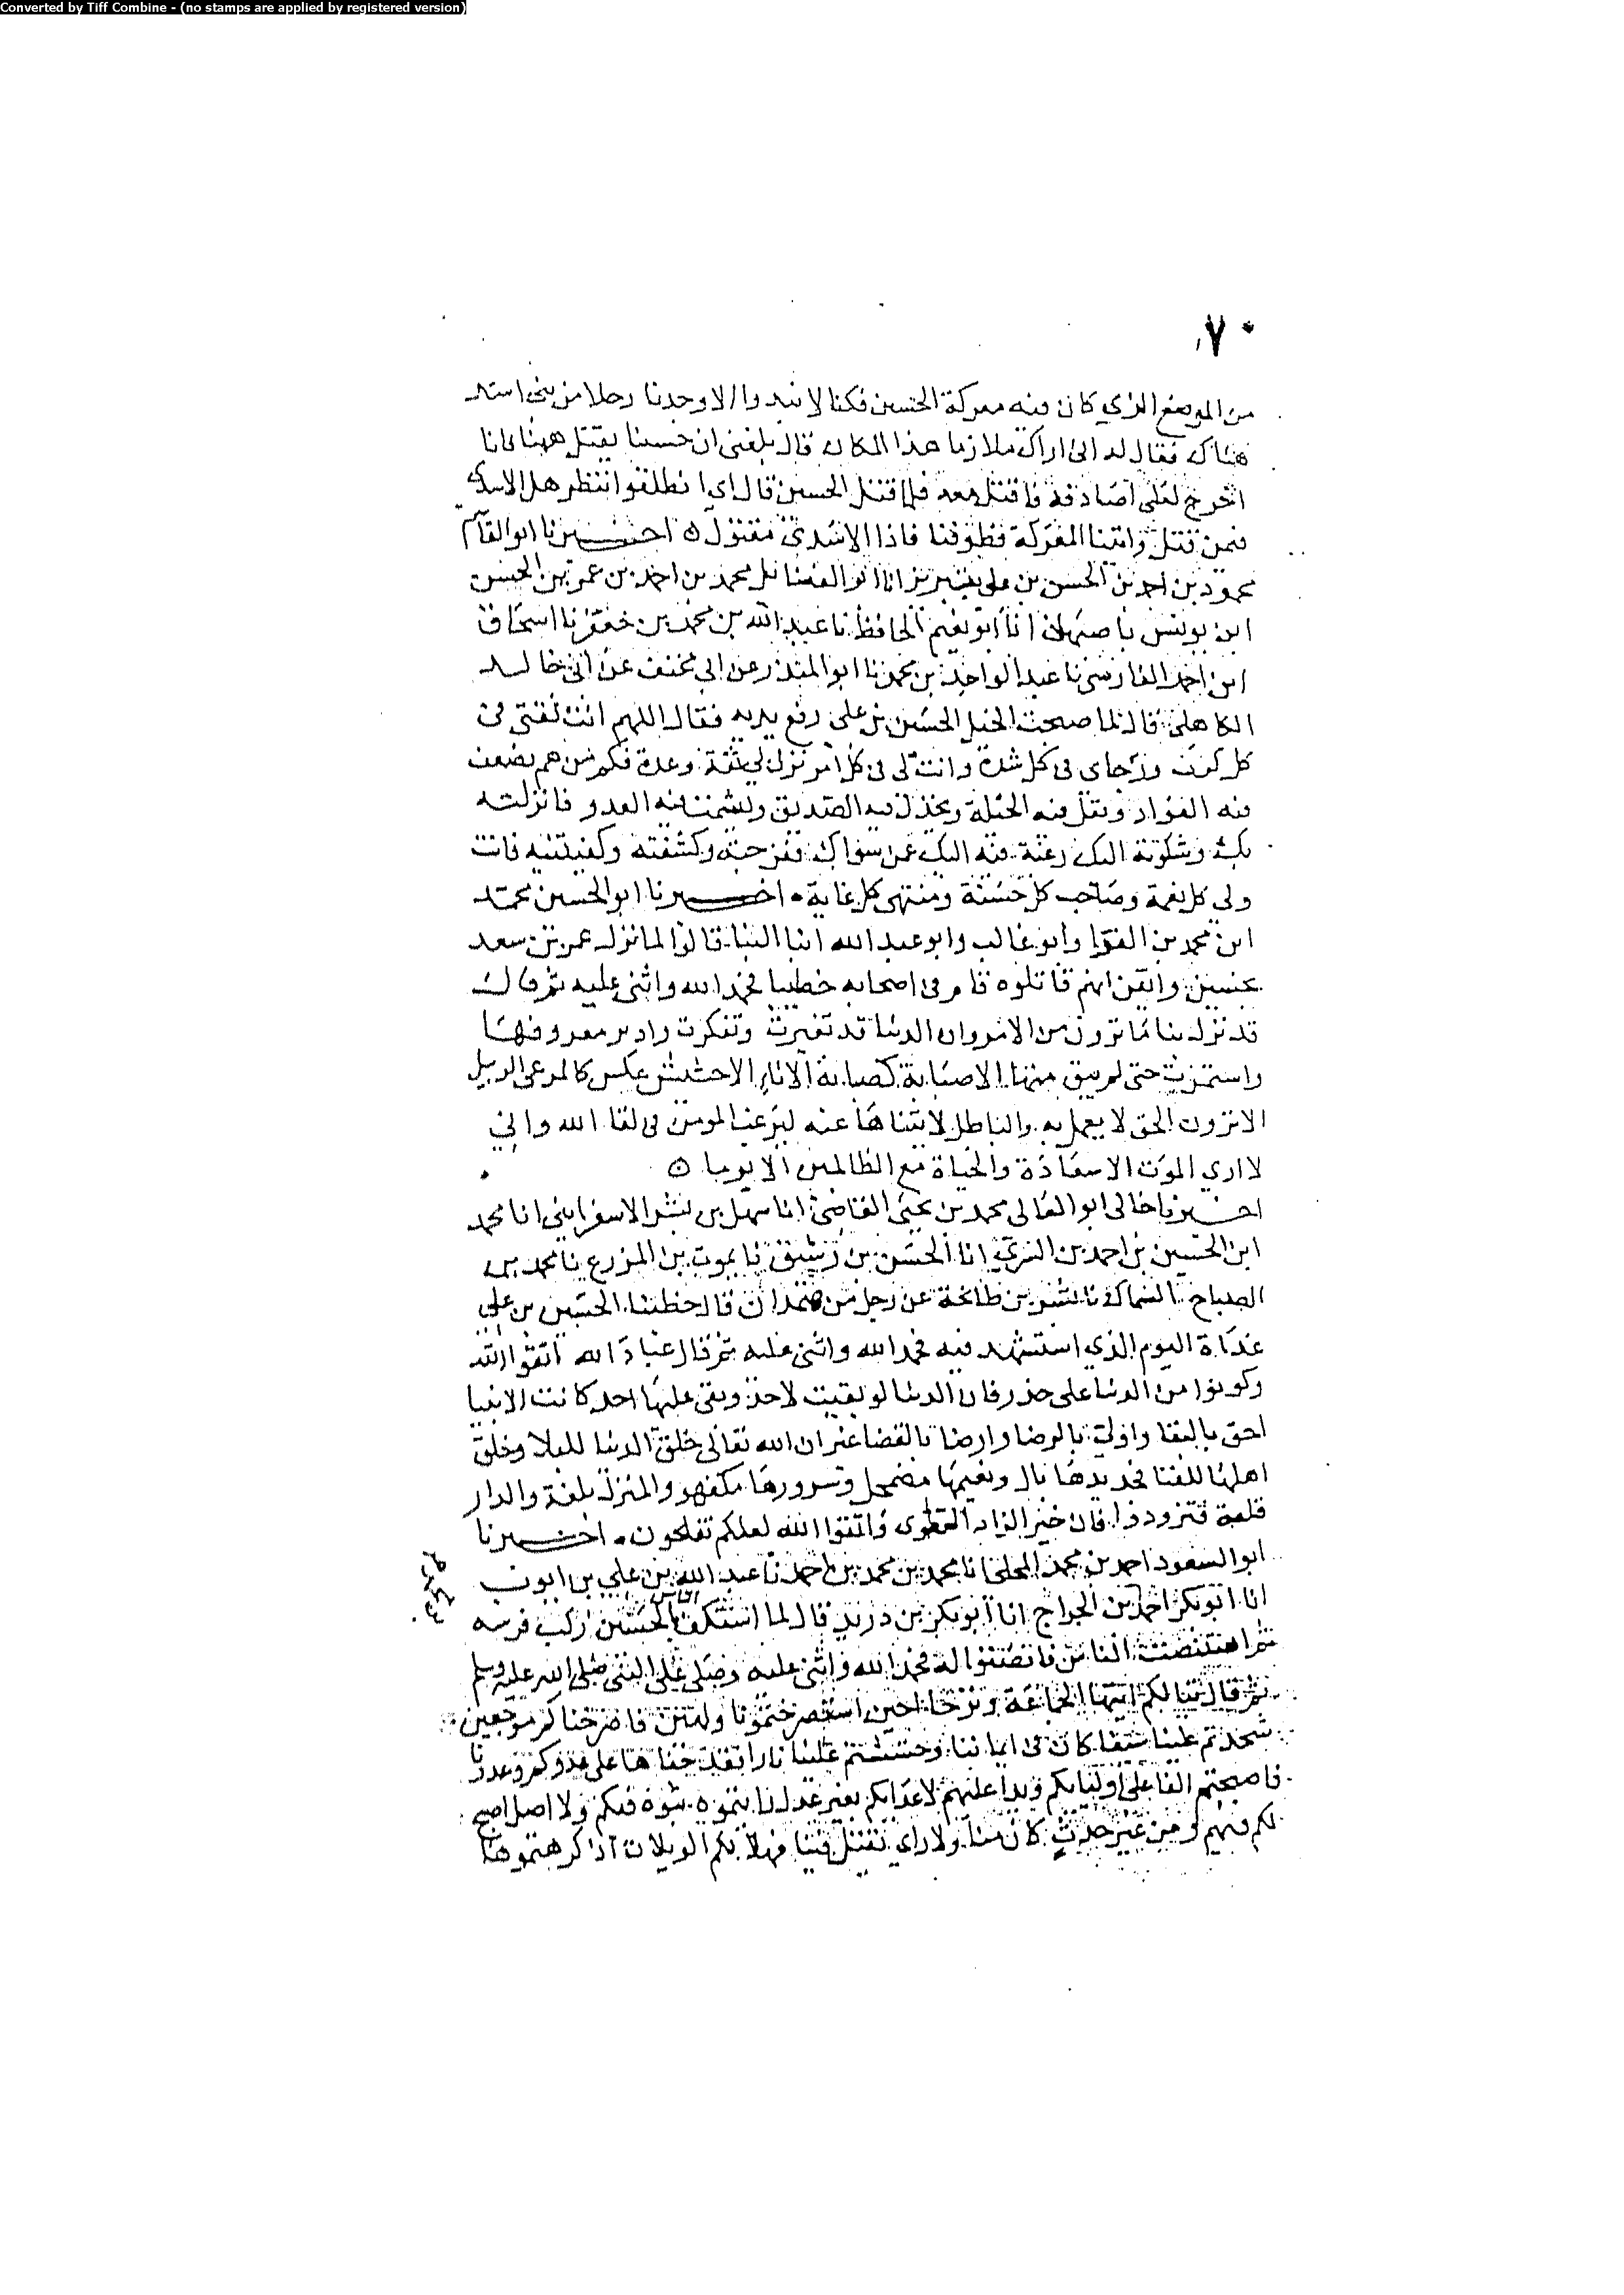 Converted by Tiff Combine - (no stamps are applied by registered version)
٧٠
من الموضع الذي كان فيه معركة الحسين فكنا لا نبدوا الا وجدنا رجلا من بني اسد
هناك فقال له ابي اراك ملازما هذا المكان قال بلغني ان حسينا يقتل ههنا فانا
اخرج لعلي اصادفه فاقتل معه فلما قتل الحسين قال ابي انطلقوا ننظر هل الاسدي
فيمن قتل واتينا المعركة فطوفنا فاذا الاسدي مقتول ۞ اخبرنا ابو القاسم
محمود بن احمد بن الحسن بن علي بتبريز انا ابو الفضائل محمد بن احمد بن عمر بن الحسن
ابن يونس باصبهان انا ابو نعيم الحافظ نا عبد الله بن محمد بن جعفر نا اسحاق
ابن احمد الفارسي نا عبد الواحد بن محمد نا ابو المنذر عن ابي مخنف عن ابي خالد
الكاهلي قال لما صبحت الخيل الحسين بن علي رفع يديه فقال اللهم انت ثقتي في
كل كرب ورجاي في كل شدة وانت لي في كل امر نزل بي ثقة وعدة فكم من هم يضعف
فيه الفؤاد وتقل فيه الحيلة ويخذل فيه الصديق ويشمت فيه العدو فانزلته
بك وشكوته اليك رغبة فيه اليك عمن سواك ففرجته وكشفته وكفيتنيه فانت
ولي كل نعمة وصاحب كل حسنة ومنتهى كل غاية ۰ اخبرنا ابو الحسين محمد
ابن محمد بن الفرا وابو غالب وابو عبد الله ابنا البنا قالوا لما نزل عمر بن سعد
بحسين وايقن انهم قاتلوه قام في اصحابه خطيبا فحمد الله واثنى عليه ثم قال
قد نزل بنا ما ترون من الامر وان الدنيا قد تغيرت وتنكرت وادبر معروفها
واستمرت حتى لم يبق منها الا صبابة كصبابة الاناء الا حشيش علس كالمرعى الوبيل
الا ترون الحق لا يعمل به والباطل لا يتناها عنه ليرغب المومن في لقا الله واني
لا اري الموت الا سعادة والحياة مع الظالمين الا برما ۞
اخبرنا خالي ابو المعالي محمد بن يحيى القاضي انا سهل بن بشر الاسفرايني انا محمد
ابن الحسين بن احمد بن السري انا الحسن بن رشيق نا يموت بن المزرع نا محمد بن
الصباح السماك نا بشر بن طانحة عن رجل من همدان قال خطبنا الحسين بن علي
غداة اليوم الذي استشهد فيه فحمد الله واثنى عليه ثم قال عباد الله اتقوا الله
وكونوا من الدنيا على حذر فان الدنيا لو بقيت لاحد وبقى عليها احد كانت الانبيا
احق بالبقا واولى بالرضا وارضا بالقضا غير ان الله تعالى خلق الدنيا للبلا وخلق
اهلها للفنا فجديدها بال ونعيمها مضمحل وسرورها مكفهر والمنزل بلغة والدار
قلعة فتزودوا فان خير الزاد التقوى واتقوا الله لعلكم تفلحون ۰ اخبرنا
ابو السعود احمد بن محمد المجلي انا محمد بن محمد بن احمد نا عبد الله بن علي بن ايوب
انا ابو بكر احمد بن الجراح انا ابو بكر بن دريد قال لما استكف الناس بالحسين ركب فرسه
ثم استنصت الناس فانصتوا له فحمد الله واثنى عليه وصلى على النبي صلى الله عليه وسلم
ثم قال تبا لكم ايتها الجماعة وترحا احين استصرختمونا ولهين فاصرخناكم موجفين
شحذتم علينا سيفا كان في ايماننا وحششتم علينا نارا اقتدحناها على عدوكم وعدونا
فاصبحتم الفا على اوليائكم ويدا عليهم لاعدائكم بغير عدل راينموه بثوه فيكم ولا اصل اصبح
لكم فيهم ومن غير حدث كان منا ولا راي تفيل فينا فهلا لكم الويلات اذ كرهتموها